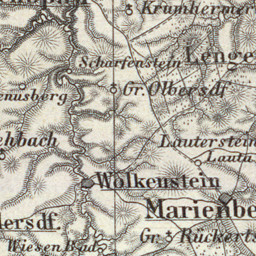 Krumhermer
Lenge
Scharfenstein
Gr. Olbersdf
enusberg
Lauterstein
hbach
Lauta
Wolkenstein
Marienbe
lersdf.
Gr. Rückerts
Wiesen Bad